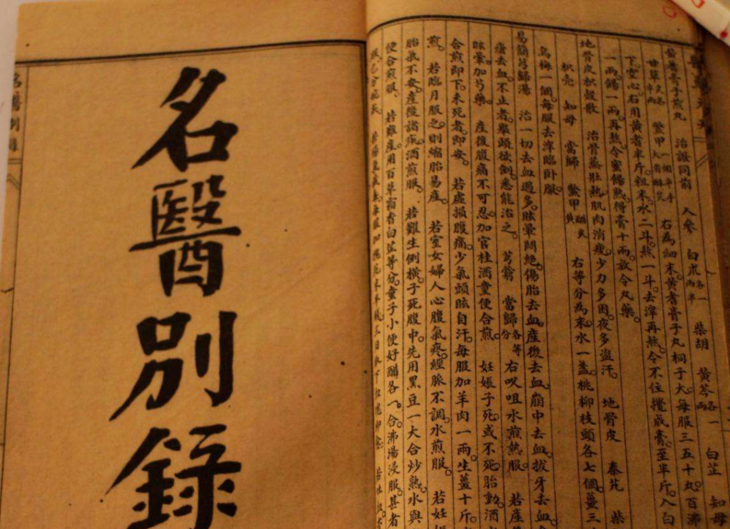 黃耆膏子煎丸 治證同前 人參 白朮各一兩半 柴胡 黃芩各一兩 白芷 知母
鱉甲 右為細末黃耆膏子丸桐子大每服三五十丸百沸
下空心右用黃耆半斤粗末水二斗熬一斗去滓再熬令不住攪成膏至半斤入白
一兩餳一兩再熬令蜜餳熟得膏十兩放令凡藥
地骨皮枳殼散 治骨蒸壯熱肌肉消瘦少力多困夜多盜汗 地骨皮 秦艽 柴
枳殼 知母 當歸 鱉甲 右等分為末水一盞桃柳枝頭各七個薑三
烏梅一個每服去滓臨臥服
易簡芎歸湯 治一切去血過多眩暈悶絕傷胎去血產後去血崩中去血拔牙去血
瘡去血不止者舉頭欲倒悉能治之 芎藭 當歸各等分 右㕮咀水煎熱服 若產
眩暈加芍藥 產後腹痛不可忍加官桂酒童便合煎 妊娠子死或不死胎動酒
合煎即下未死者即安 若虛損腹痛少氣頭眩自汗每服加羊肉一兩生薑十斤
煎 若臨月服之則縮胎易產 若室女婦人心腹氣疼經脈不調水煎服 若妊
胎氣不安產後諸疾酒煎服 若難生倒橫子死腹中先用黑豆一大合炒熱水與
便合煎服 若難產用百草霜香白芷等分童子小便好醋各一合沸湯浸服甚者
名醫別錄
名醫別錄